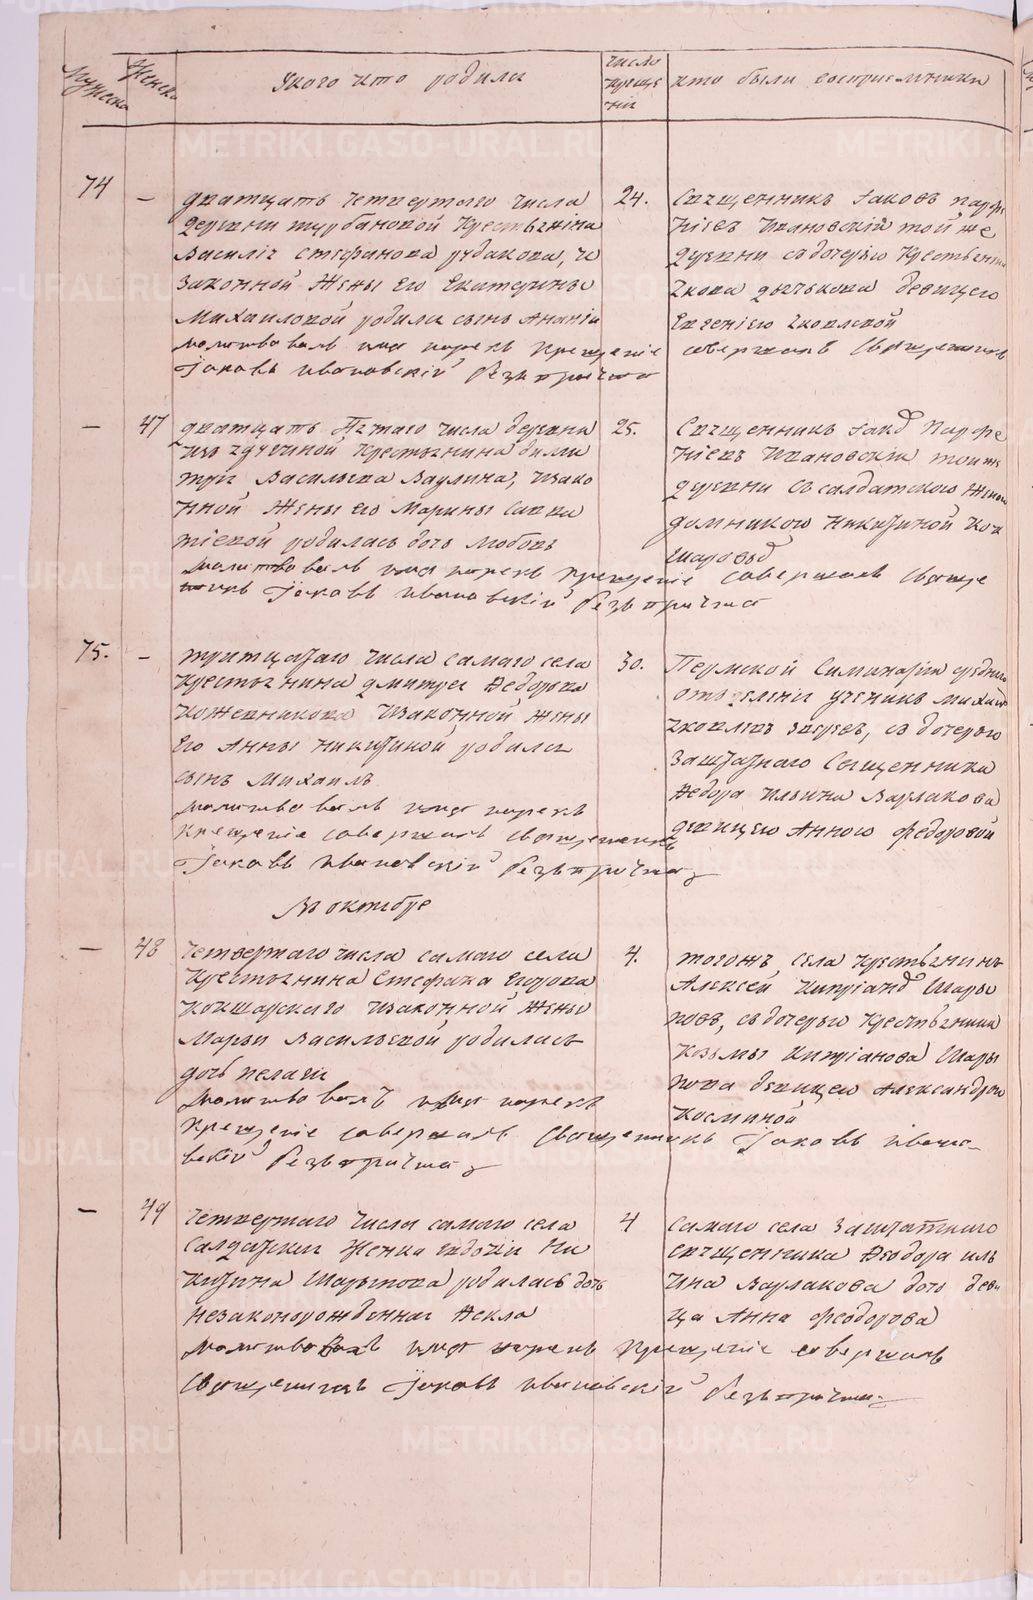 Мужеска
Женска
Укого кто родился
число
крще
ніи
кто были восприемники
74
–
дватцать четвертаго числа
деревни турбановой Крестьянина
Василія Стефанова рудакова, и
законной жены Его Екатерины
Михаиловой родился сынъ Ананіи
молитвовалъ имя нарекъ крещеніе
совершалъ Священникъ
Іаковъ Ивановскій безъ причта
24.
Священникъ Іаковъ парфе
ніевъ Ивановскій той же
деревни съ дочерью Крестьянина
девицею
Евгеніею Іаковлевой
–
47
дватцать Пятаго числа деревни
Крестьянина дими
трія Васильева Ваулина, изако
нной жены Его Марины Савва
тіевой родилась дочь любовь
молитвовалъ имя нарекъ крещеніе совершалъ Свяще
нникъ Іаковъ Ивановскій безъ причта
25.
Священникъ Іаковъ Парфе
ніевъ Ивановскій тоиже
деревни съ салдатскою женою
домникою никитиной Коч
шаровой
75.
–
тритцатаго числа самаго села
Крестьянина дмитрея Федорова
Кожевникова изаконной жены
Его Анны никитиной родился
сынъ Михаилъ
молитвовалъ имя нарекъ
крещеніе совершалъ священникъ
Іаковъ Ивановскій безъ причта
30.
Пермской Симинаріи средняго
отъделенія ученикъ михаилъ
Іковлевъ звревъ, съ дочерью
заштатнаго Священника
Федора ильина Варлакова
девицею Анною федоровой
Въ октябре
–
48
четвертаго числа самаго села
Крестьянина Стефана Егорова
Кокшарскаго изаконной жены
Марьи Васильевой родилась
дочь пелагія
молитвовалъ имя нарекъ
крещеніе совершалъ Священникъ Іаковъ Ивано-
вскій безъ причта
4.
тогожъ села крестьянинъ
Алексей Кипріановъ Шары
повъ, съ дочерью Крестьянина
козьмы Кипріанова Шары
пова девицею Александрою
Косминой
–
49
четвертаго числа самаго села
салдатской женки евдокіи Ни
китина Шарыпова родилась дочь
незаконорожденная Фекла
молитвовалъ имя нарекъ крещеніе совершалъ
Священникъ Іаковъ Ивановскій безъ причта.
4
самаго села заштатнаго
священника Феодора иль
ина Варлакова дочь деви
ца Анна феодорова
METRIKI.GASO-URAL.RU